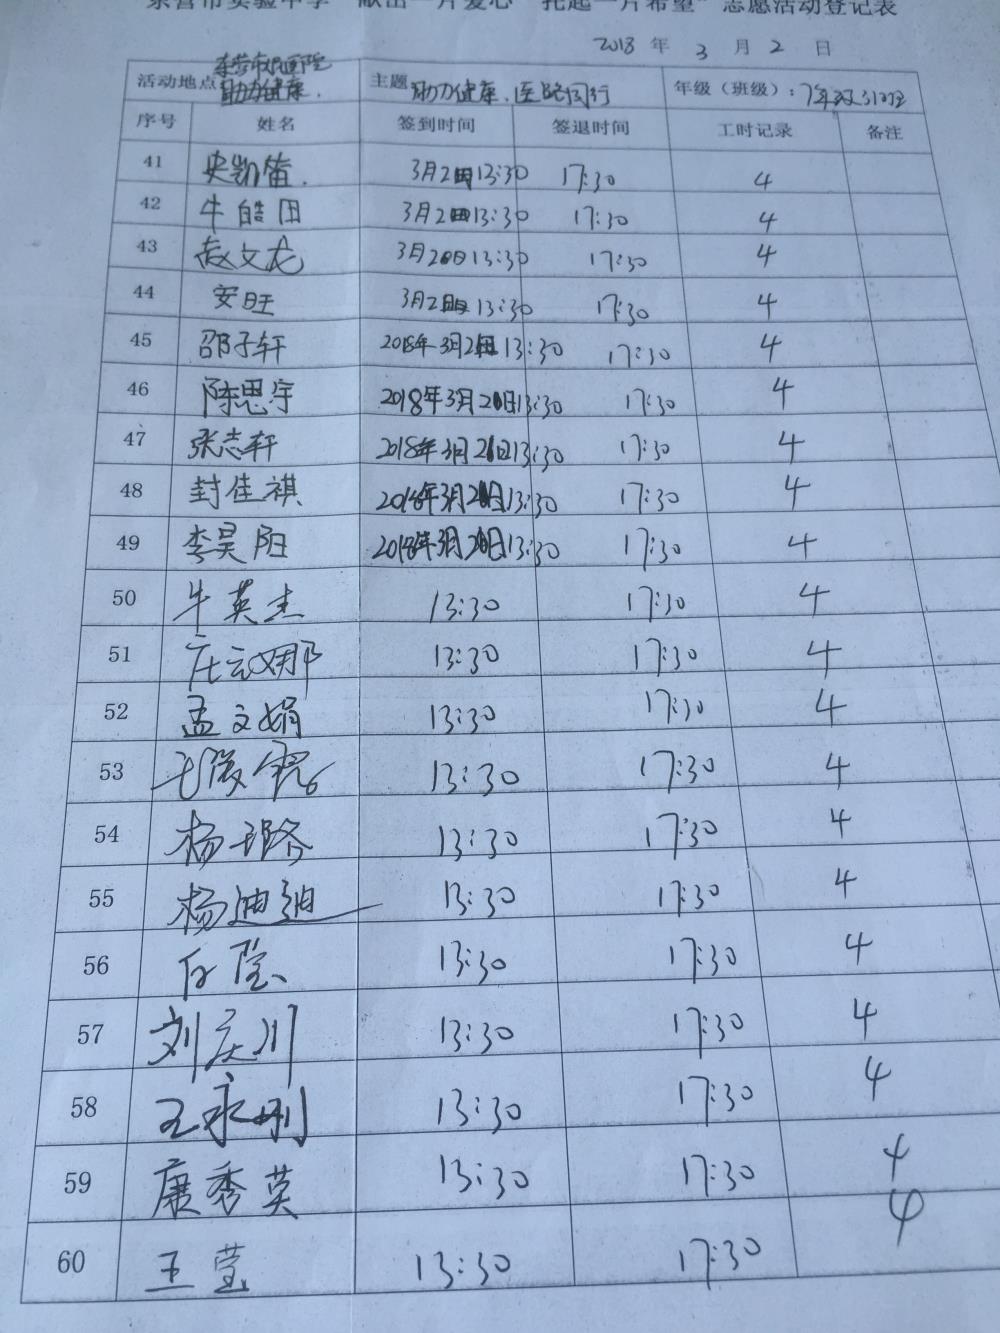 东营市实验中学"献出一片爱心 托起一片希望"志愿活动登记表
2018 年 3 月 2 日
活动地点 东营市人民医院 助力健康. 主题 助力健康、医路同行 年级(班级):
序号 姓名 签到时间 签退时间 工时记录 备注
41 史凯 3月2日13:30 17:30 4
42 牛皓田 3月2日13:30 17:30 4
43 赵文龙 3月2日13:30 17:30 4
44 安旺 3月2日13:30 17:30 4
45 邵子轩 2018年3月2日13:30 17:30 4
46 陈思宇 2018年3月2日13:30 17:30 4
47 张志轩 2018年3月2日13:30 17:30 4
48 封佳祺 2018年3月2日13:30 17:30 4
49 李昊阳 2018年3月2日13:30 17:30 4
50 牛英杰 13:30 17:30 4
51 庄云娜 13:30 17:30 4
52 孟文娟 13:30 17:30 4
53 13:30 17:30 4
54 杨璐 13:30 17:30 4
55 杨迪迪 13:30 17:30 4
56 13:30 17:30 4
57 刘庆川 13:30 17:30 4
58 王永刚 13:30 17:30 4
59 康秀英 13:30 17:30 4
60 王莹 13:30 17:30 4